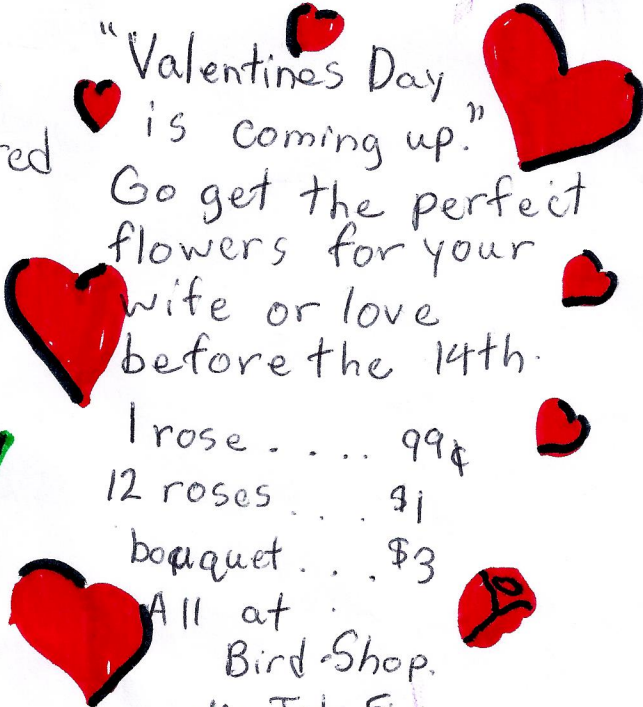 "Valentines Day
is coming up."
Go get the perfect
flowers for your
wife or love
before the 14th.
1 rose . . . . . 99¢
12 roses . . . . $1
bouquet . . . . $3
All at
Bird Shop.